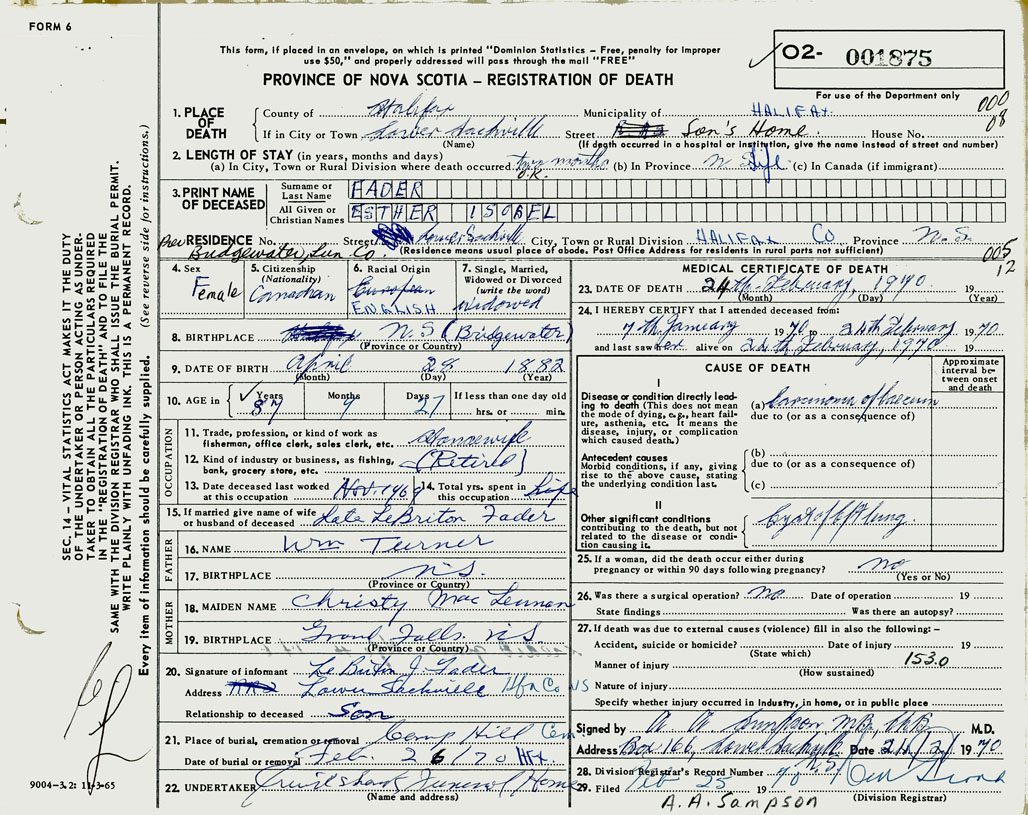 FORM 6
This form, if placed in an envelope, on which is printed "Dominion Statistics – Free, penalty for improper
use $50," and properly addressed will pass through the mail "FREE"
PROVINCE OF NOVA SCOTIA – REGISTRATION OF DEATH
O2- 001875
For use of the Department only
000
08
1. PLACE OF DEATH
County of Halifax Municipality of HALIFAX
If in City or Town Lower Sackville Street Son's Home. House No.
(Name) (If death occurred in a hospital or institution, give the name instead of street and number)
2. LENGTH OF STAY (in years, months and days)
(a) In City, Town or Rural Division where death occurred two months (b) In Province N. S. life (c) In Canada (if immigrant)
O.K.
3. PRINT NAME OF DECEASED
Surname or Last Name FADER
All Given or Christian Names ESTHER ISOBEL
RESIDENCE No. Street Lower Sackville City, Town or Rural Division HALIFAX Co Province N.S.
Prev Bridgewater, Lun. Co. (Residence means usual place of abode. Post Office Address for residents in rural parts not sufficient)
005
12
4. Sex Female
5. Citizenship (Nationality) Canadian
6. Racial Origin European ENGLISH
7. Single, Married, Widowed or Divorced (write the word) widowed
8. BIRTHPLACE N.S (Bridgewater)
(Province or Country)
9. DATE OF BIRTH April 28 1882
(Month) (Day) (Year)
10. AGE in Years 87 Months 9 Days 27 If less than one day old hrs. or min.
OCCUPATION
11. Trade, profession, or kind of work as fisherman, office clerk, sales clerk, etc. Housewife
12. Kind of industry or business, as fishing, bank, grocery store, etc. (Retired)
13. Date deceased last worked at this occupation Nov. 1969
14. Total yrs. spent in this occupation life
15. If married give name of wife or husband of deceased Late LeBriton Fader
FATHER
16. NAME Wm Turner
17. BIRTHPLACE N.S.
(Province or Country)
MOTHER
18. MAIDEN NAME Christy MacLennan
19. BIRTHPLACE Grand Falls N.S
(Province or Country)
20. Signature of informant LeBriton J. Fader
Address Lower Sackville Hfx Co NS
Relationship to deceased Son
21. Place of burial, cremation or removal Camp Hill Cem
Date of burial or removal Feb. 26/70 HFX.
22. UNDERTAKER Cruikshank Funeral Home
(Name and address)
MEDICAL CERTIFICATE OF DEATH
23. DATE OF DEATH 24th February, 1970 19
(Month) (Day) (Year)
24. I HEREBY CERTIFY that I attended deceased from:
7th January 1970 to 24th February 1970
and last saw her alive on 24th February, 1970 19
CAUSE OF DEATH
Approximate interval between onset and death
I
Disease or condition directly leading to death (This does not mean the mode of dying, e.g., heart failure, asthenia, etc. It means the disease, injury, or complication which caused death.)
(a) Carcinoma of caecum
due to (or as a consequence of)
Antecedent causes
Morbid conditions, if any, giving rise to the above cause, stating the underlying condition last.
(b)
due to (or as a consequence of)
(c)
II
Other significant conditions contributing to the death, but not related to the disease or condition causing it.
Cyst of left lung.
25. If a woman, did the death occur either during pregnancy or within 90 days following pregnancy? no
(Yes or No)
26. Was there a surgical operation? no. Date of operation 19
State findings Was there an autopsy?
27. If death was due to external causes (violence) fill in also the following: –
Accident, suicide or homicide? Date of injury 19
(State which)
Manner of injury 153.0
(How sustained)
Nature of injury
Specify whether injury occurred in industry, in home, or in public place
Signed by A A Sampson MB, ChB M.D.
Address Box 160, Lower Sackville Date 24/2/ 1970
N.S.
28. Division Registrar's Record Number
29. Filed Feb 25 1970
(Division Registrar)
A.A. Sampson
SEC. 14 – VITAL STATISTICS ACT MAKES IT THE DUTY
OF THE UNDERTAKER OR PERSON ACTING AS UNDER-
TAKER TO OBTAIN ALL THE PARTICULARS REQUIRED
IN THE "REGISTRATION OF DEATH" AND TO FILE THE
SAME WITH THE DIVISION REGISTRAR WHO SHALL ISSUE THE BURIAL PERMIT.
WRITE PLAINLY WITH UNFADING INK. THIS IS A PERMANENT RECORD.
Every item of information should be carefully supplied. (See reverse side for instructions.)
9004-3.2: 11-3-65